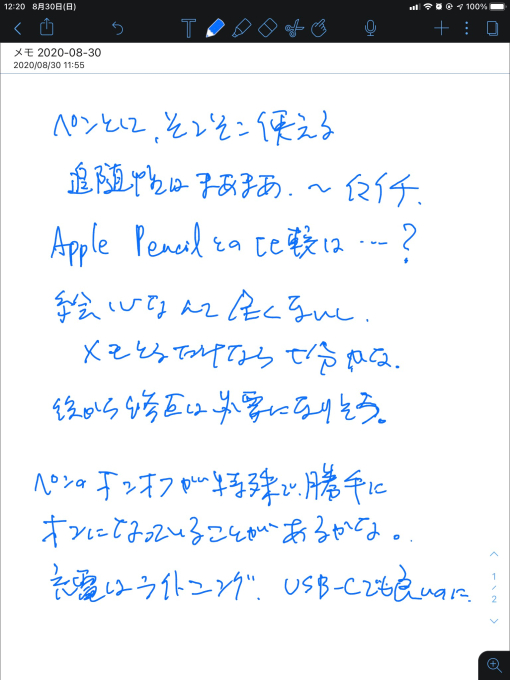 12:20 8月30日(日)
100%
メモ 2020-08-30
2020/08/30 11:55
ペンとして、そこそこ使える
追随性はまあまあ.〜イマイチ.
Apple Pencilとの比較は…?
絵心なんて全くないし.
メモとるだけなら十分かな.
後から修正は必要になりそう。
ペンのオンオフが特殊で、勝手に
オンになっていることがあるかな。
充電はライトニング. USB-Cでも良いのに.
1/2